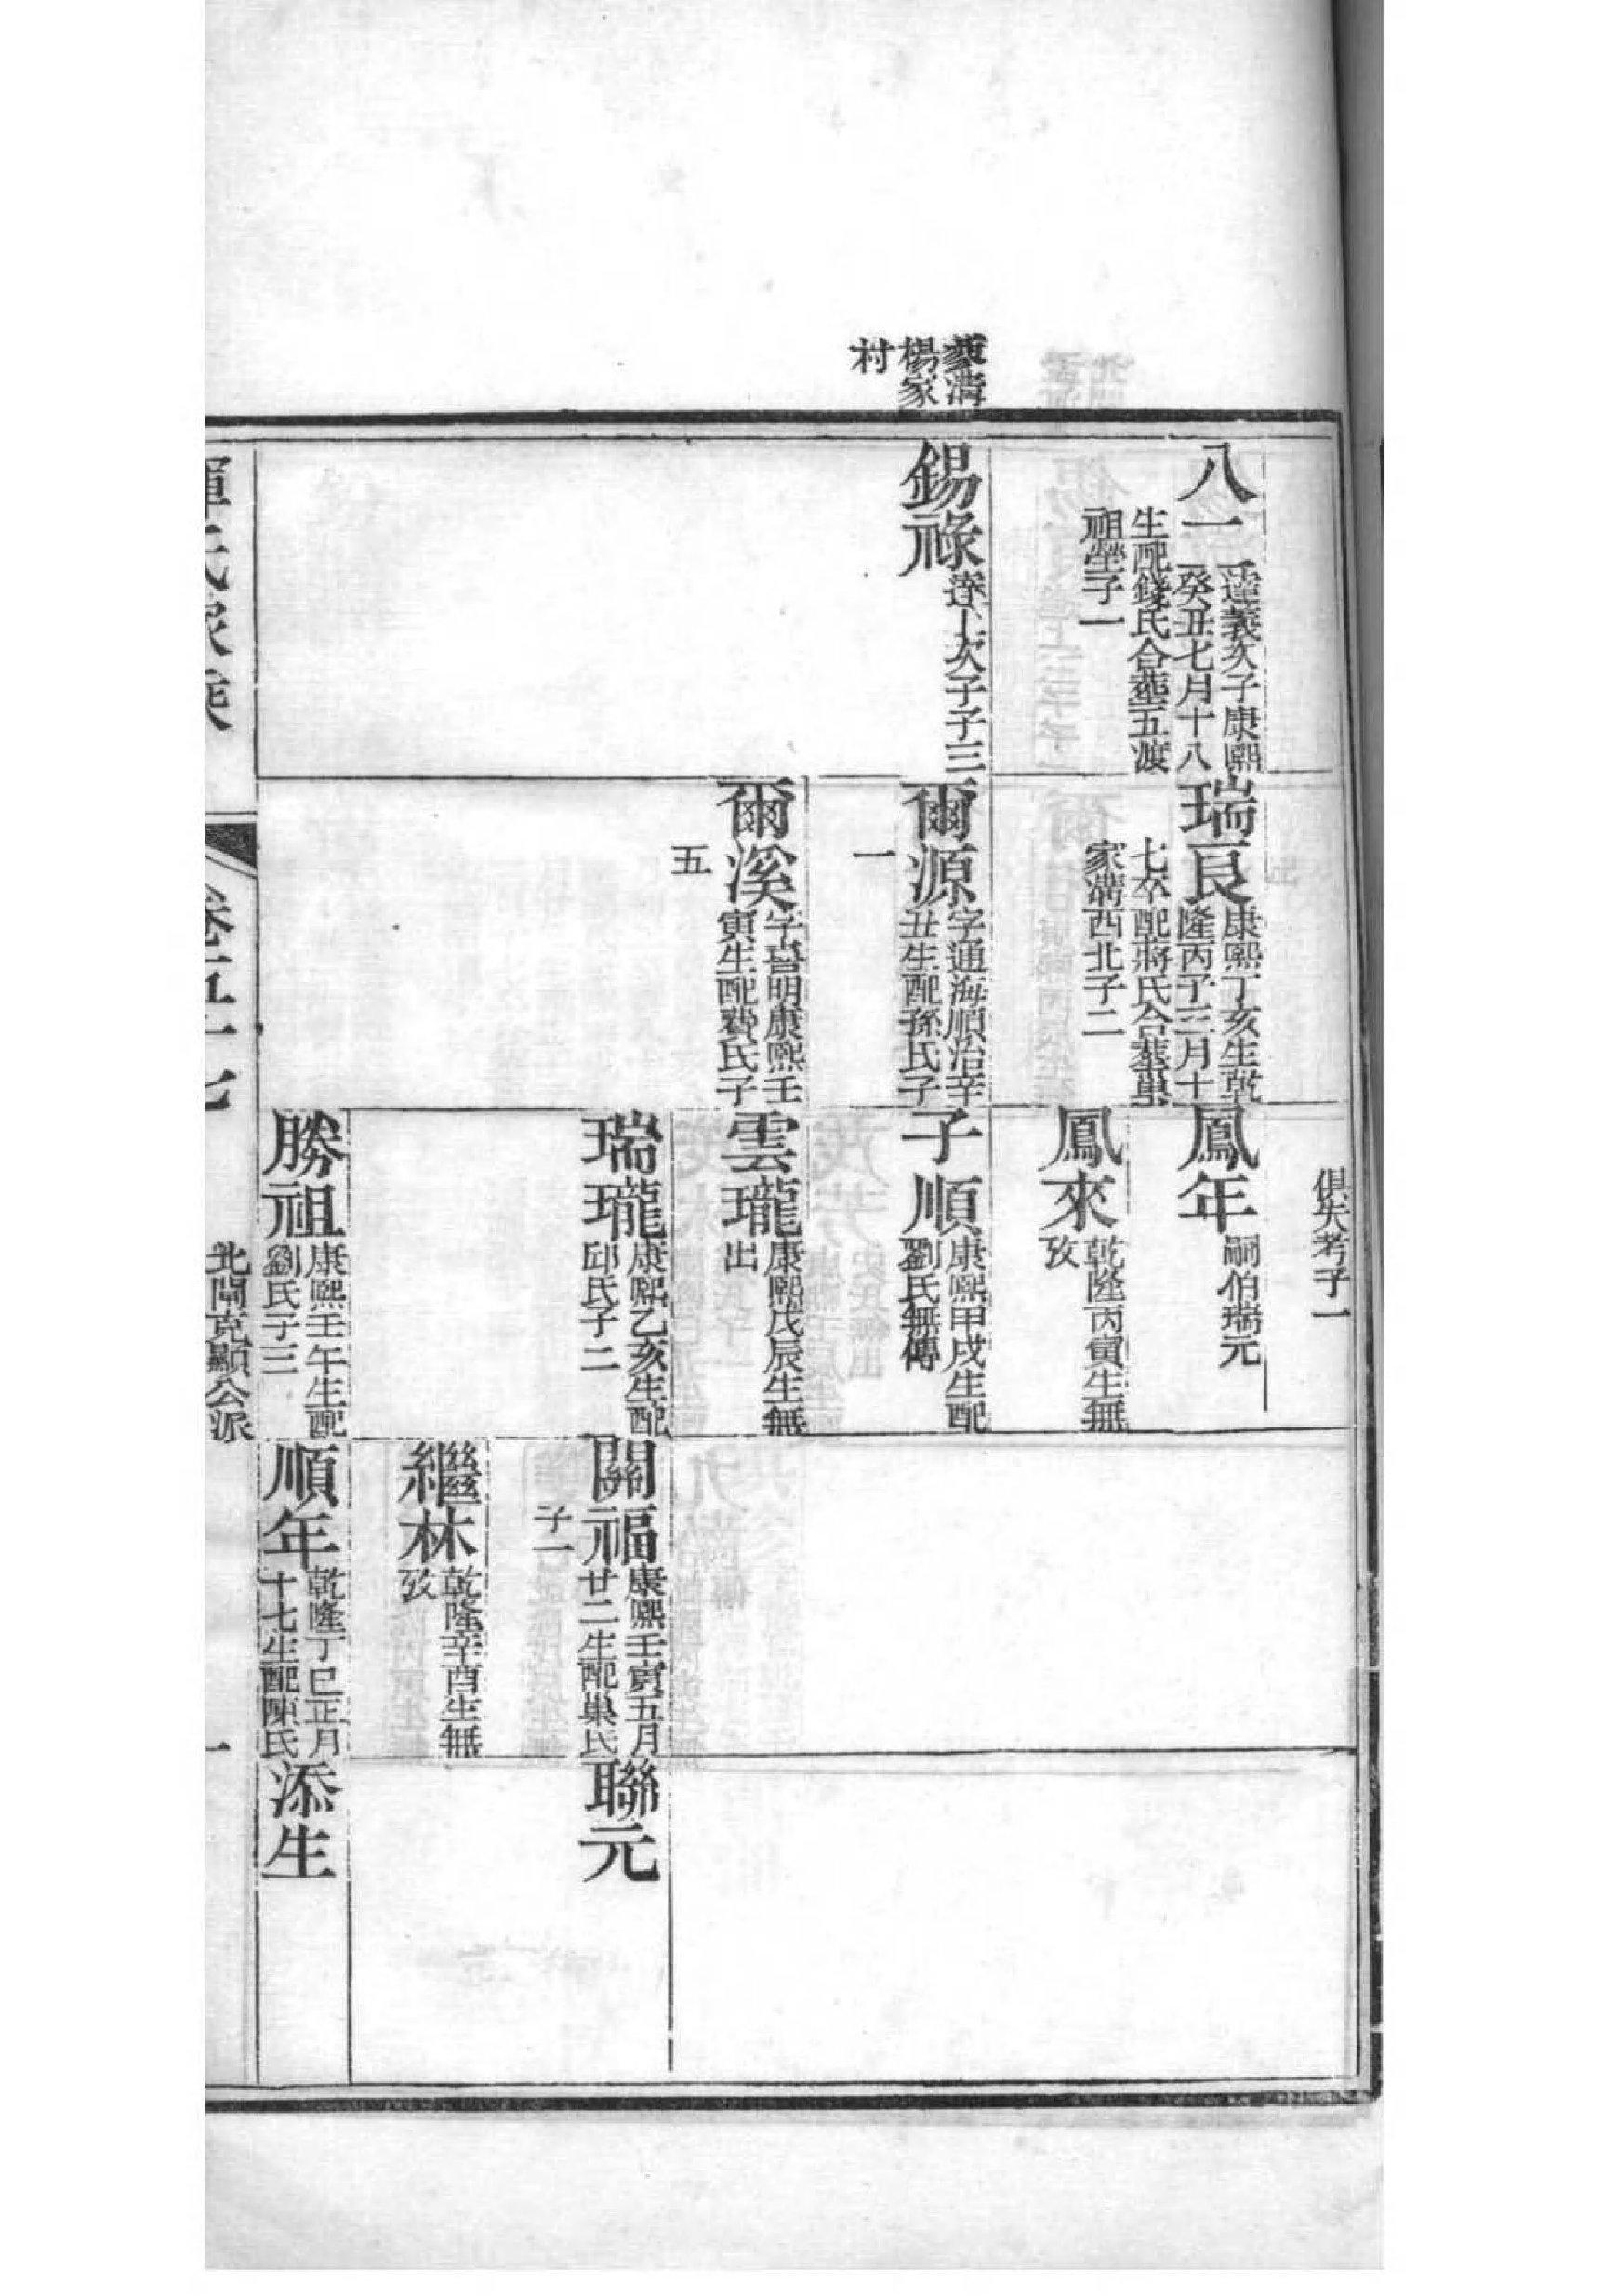 巢溝
楊家
村
八一
達義次子康熙
癸丑七月十八
生配錢氏合葬五渡
祖塋子一
錫祿
達卜次子子三
瑞良
康熙丁亥生乾
隆丙子三月十
七卒配蔣氏合葬巢
家溝西北子二
爾源
字通海順治辛
丑生配孫氏子
一
爾溪
字晋明康熙壬
寅生配費氏子
五
俱失考子一
鳳年
嗣伯瑞元
鳳來
乾隆丙寅生無
攷
子順
康熙甲戌生配
劉氏無傳
雲瓏
康熙戊辰生無
出
瑞瓏
康熙乙亥生配
邱氏子二
勝祖
康熙壬午生配
劉氏子三
開福
康熙壬寅五月
廿二生配巢氏
子一
繼林
乾隆辛酉生無
攷
順年
乾隆丁巳正月
十七生配陳氏
聯元
添生
惲氏家乘
卷五十七
北閘克顯公派
一